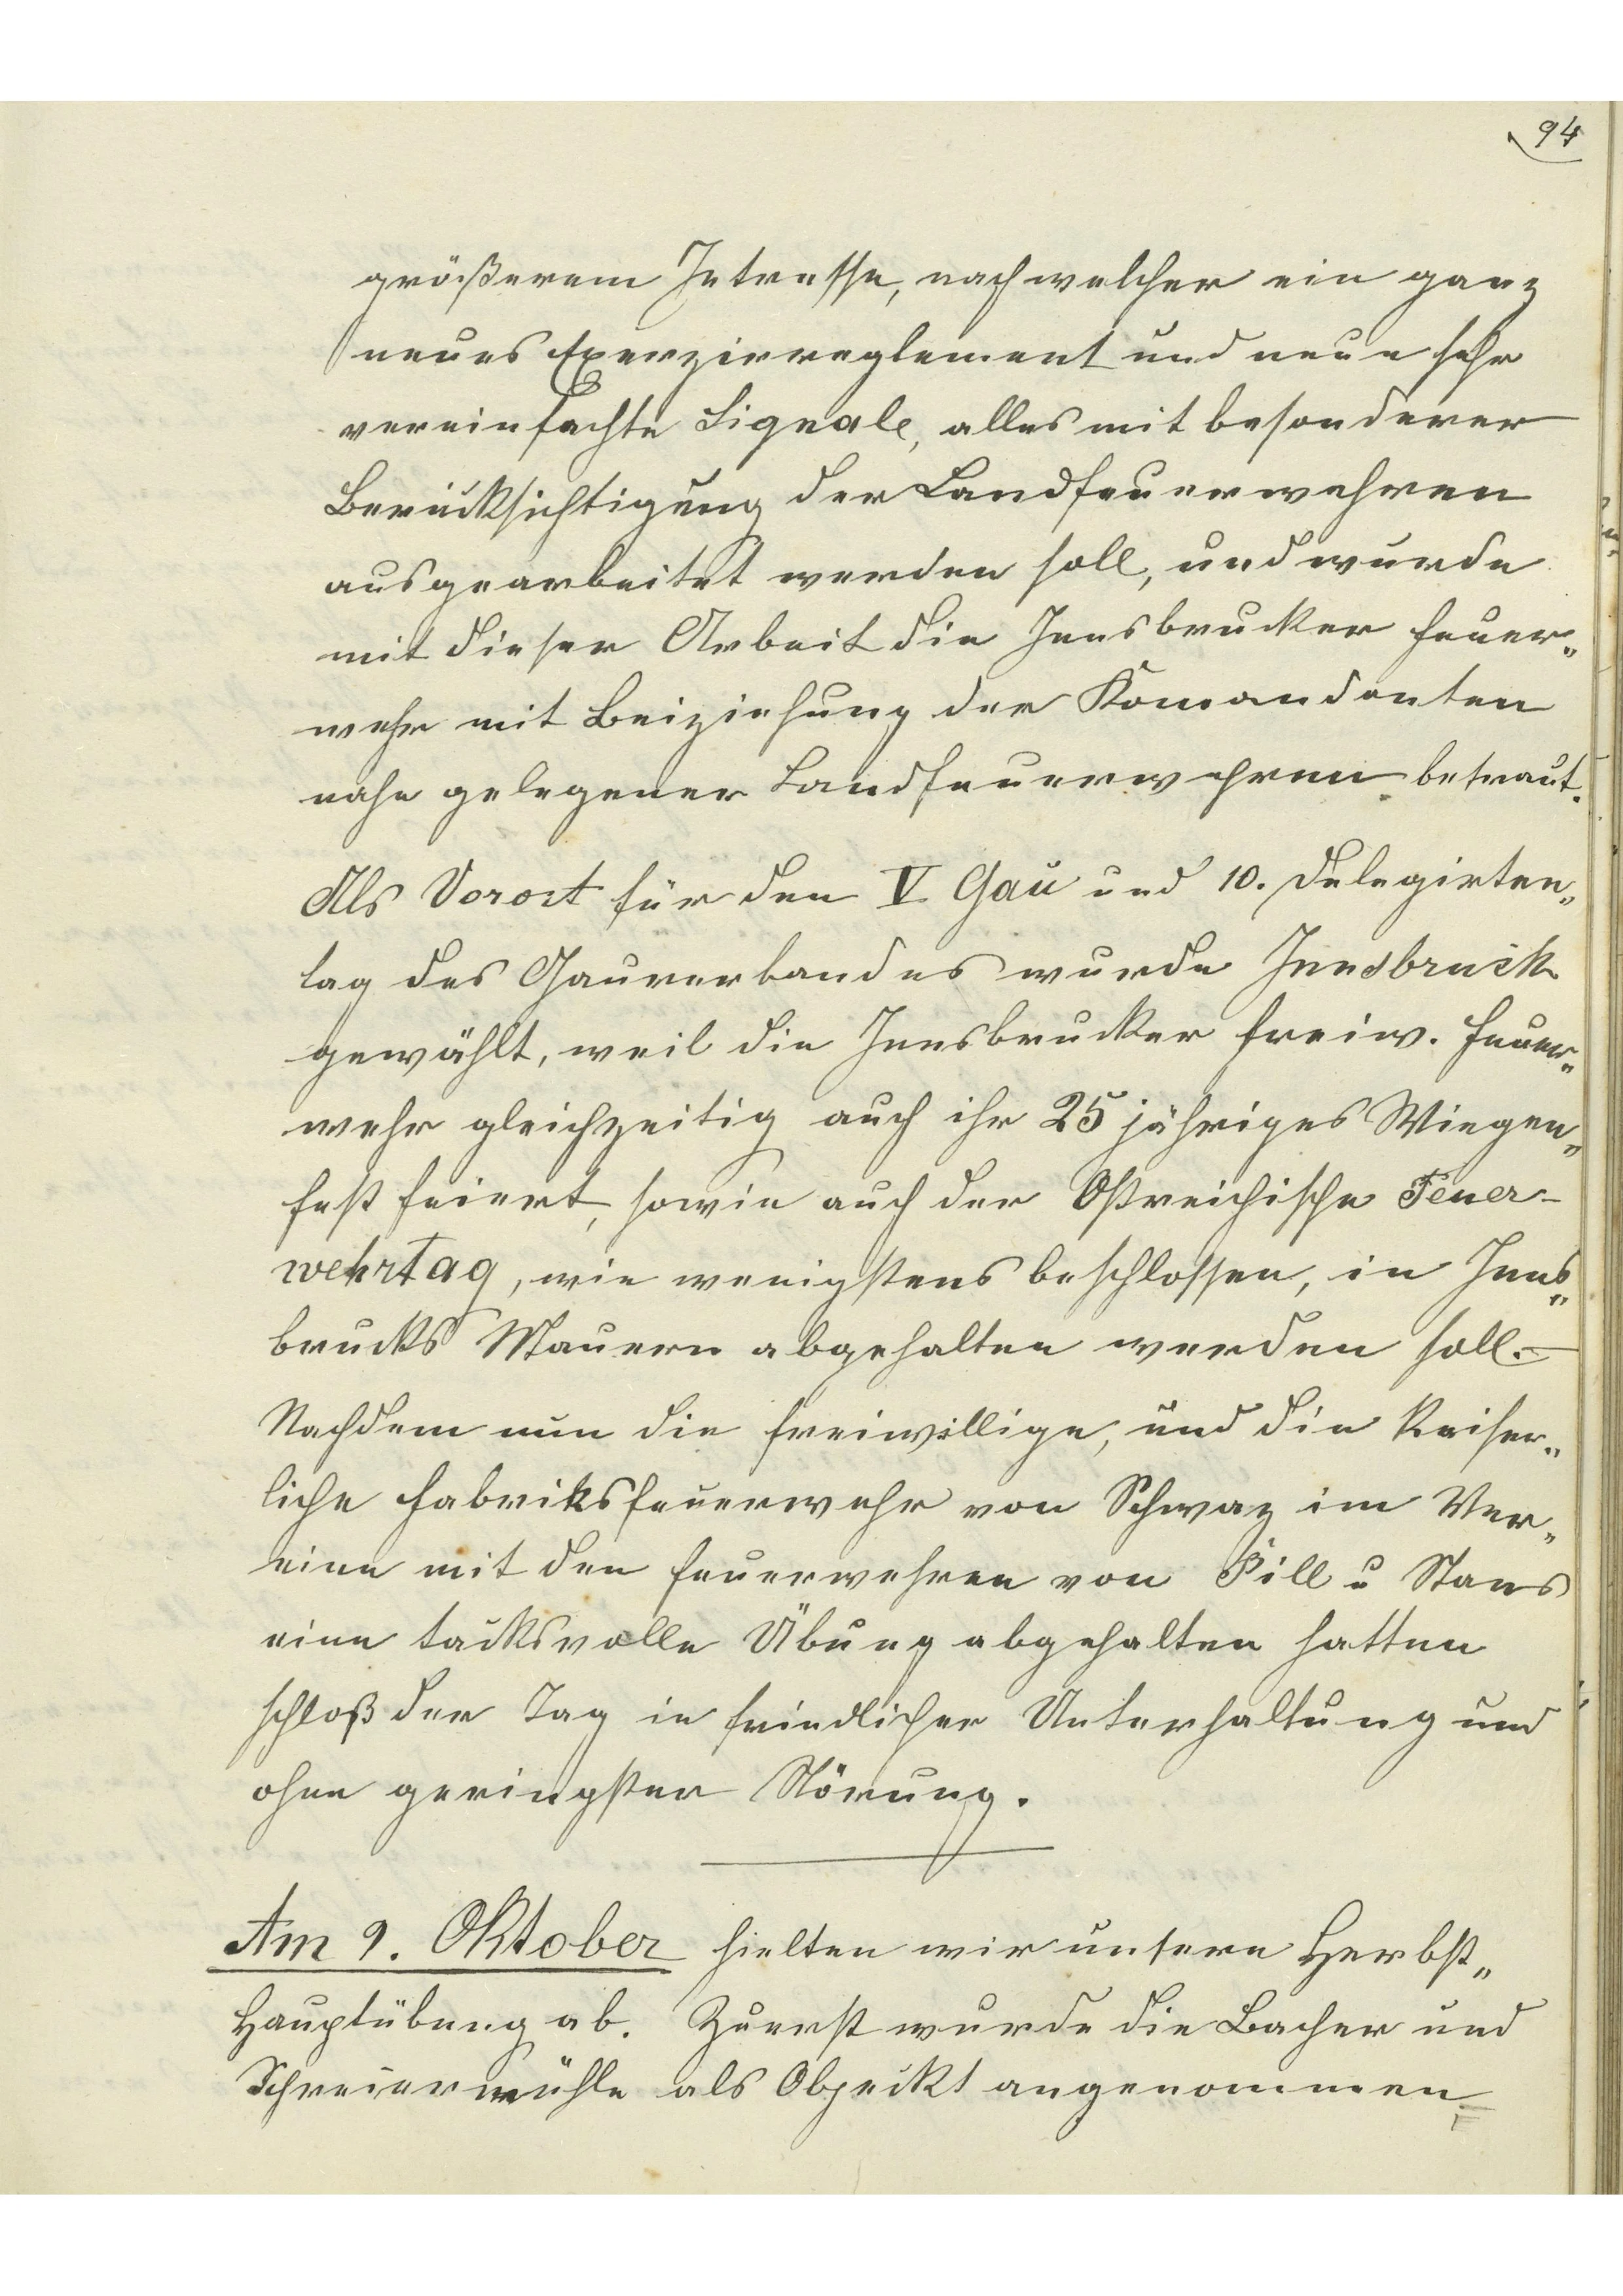 94
größerem Intresse, nach welcher ein ganz
neues Exerzierreglement und neue sehr
vereinfachte Signale, alles mit besonderer
Berücksichtigung der Landfeuerwehren
ausgearbeitet werden soll, und wurde
mit dieser Arbeit die Innsbrucker Feuer„
wehr mit Beiziehung der Komandanten
nahe gelegener Landfeuerwehren betraut.
Als Vorort für den V Gau und 10. Delegirten„
tag des Gauverbandes wurde Innsbruck
gewählt, weil die Innsbrucker freiw. Feuer„
wehr gleichzeitig auch ihr 25 jähriges Wiegen„
fest feiert, sowie auch der Östreichische Feuer-
wehrtag, wie wenigstens beschlossen, in Inns„
brucks Mauern abgehalten werden soll.—
Nachdem nun die freiwillige, und die Kaiser„
liche Fabriksfeuerwehr von Schwaz im Ver„
eine mit den Feuerwehren von Pill u Stans
eine tacksvolle Übung abgehalten hatten
schloß der Tag in friedlicher Unterhaltung und
ohne geringster Störung.
Am 9. Oktober hielten wir unsere Herbst„
Hauptübung ab. Zuerst wurde die Bacher und
Schreiermühle als Objeckt angenommen